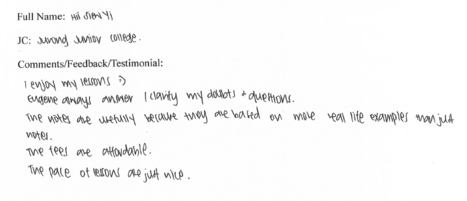 Full Name: Hoi Siew Yi
JC: Jurong Junior College.
Comments/Feedback/Testimonial:
I enjoy my lessons :)
Eugene always answer / clarify my doubts + questions.
The notes are usefully because they are based on more real life examples than just
notes.
The fees are affordable.
The pace of lessons are just nice.